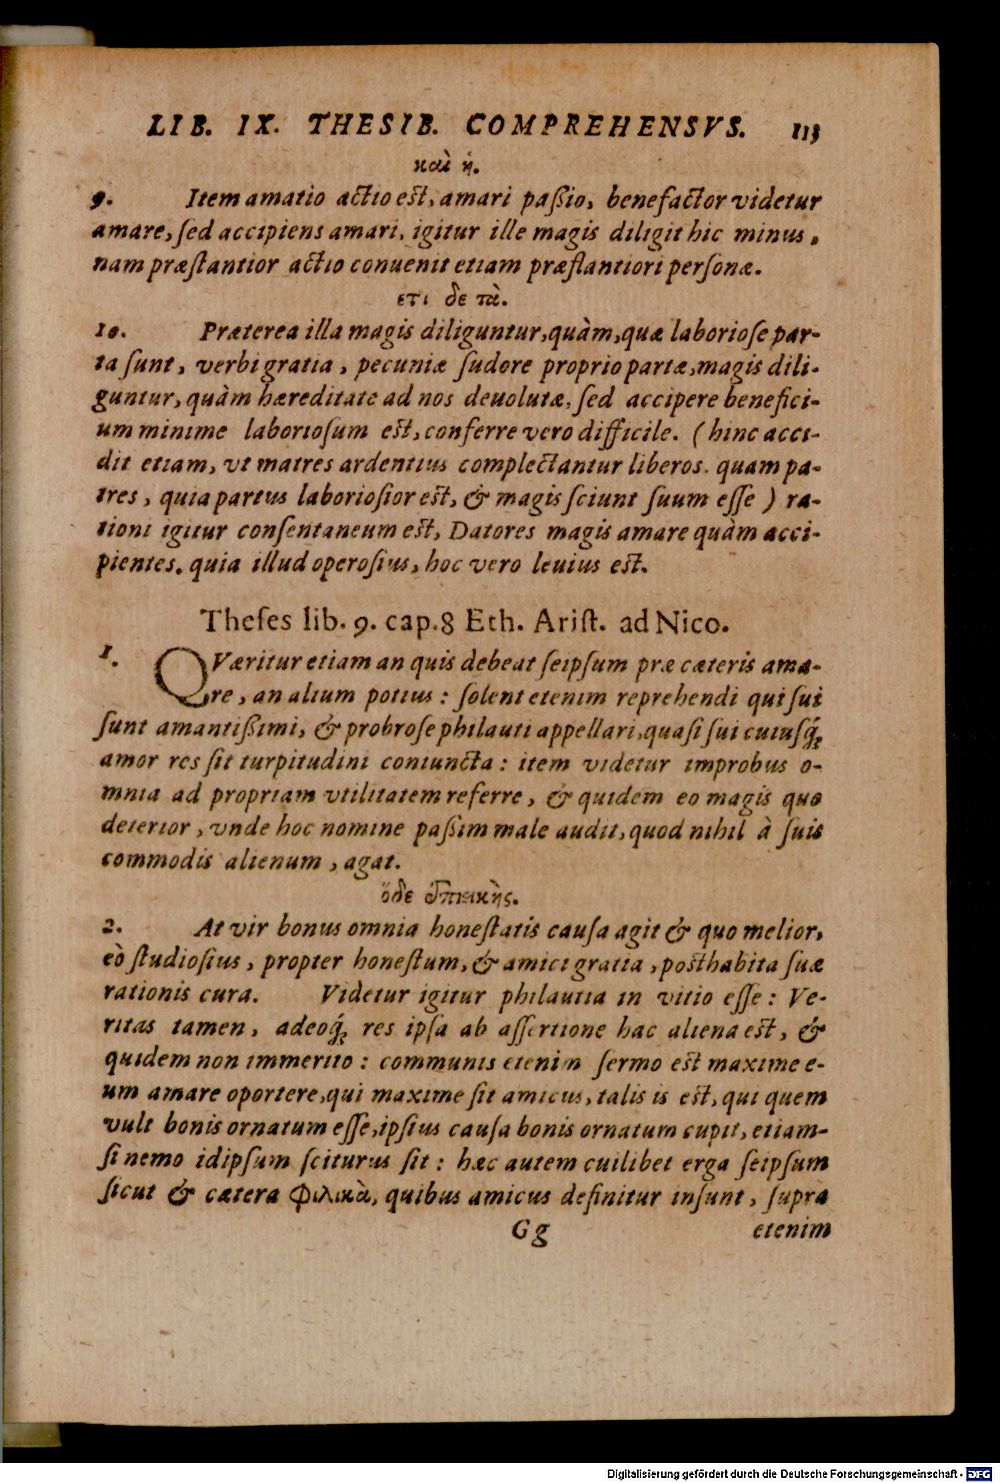 LIB. IX. THESIB. COMPREHENSVS. 113
καὶ ἡ.
9. Item amatio actio est, amari paßio, benefactor videtur
amare, sed accipiens amari, igitur ille magis diligit hic minus,
nam præstantior actio conuenit etiam præstantiori personæ.
ετι δὲ τὰ.
10. Præterea illa magis diliguntur, quàm, quæ laboriose par-
ta sunt, verbi gratia, pecuniæ sudore proprio partæ, magis dili-
guntur, quàm hæreditate ad nos deuolutæ, sed accipere benefici-
um minime laboriosum est, conferre vero difficile. (hinc acci-
dit etiam, vt matres ardentius complectantur liberos. quam pa-
tres, quia partus laboriosior est, & magis sciunt suum esse) ra-
tioni igitur consentaneum est, Datores magis amare quàm acci-
pientes. quia illud operosius, hoc vero leuius est.
Theses lib. 9. cap. 8 Eth. Arist. ad Nico.
1. QVæritur etiam an quis debeat seipsum præ cæteris ama-
re, an alium potius: solent etenim reprehendi qui sui
sunt amantißimi, & probrose philauti appellari, quasi sui cuiusq́;
amor res sit turpitudini coniuncta: item videtur improbus o-
mnia ad propriam vtilitatem referre, & quidem eo magis quo
deterior, vnde hoc nomine paßim male audit, quod nihil à suis
commodis alienum, agat.
ὅδε ἐπιεικὴς.
2. At vir bonus omnia honestatis causa agit & quo melior,
eò studiosius, propter honestum, & amici gratia, posthabita suæ
rationis cura. Videtur igitur philautia in vitio esse: Ve-
ritas tamen, adeoq́; res ipsa ab assertione hac aliena est, &
quidem non immerito: communis etenim sermo est maxime e-
um amare oportere, qui maxime sit amicus, talis is est, qui quem
vult bonis ornatum esse, ipsius causa bonis ornatum cupit, etiam-
si nemo idipsum sciturus sit: hæc autem cuilibet erga seipsum
sicut & cætera φιλικὰ, quibus amicus definitur insunt, supra
Gg etenim
Digitalisierung gefördert durch die Deutsche Forschungsgemeinschaft - DFG